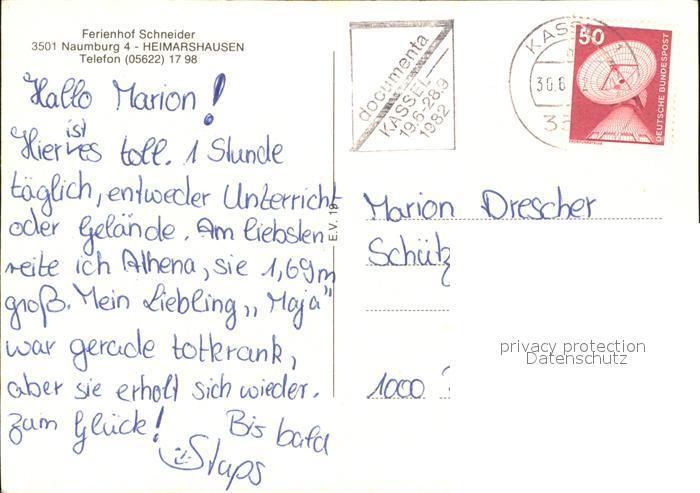 Ferienhof Schneider
3501 Naumburg 4 - HEIMARSHAUSEN
Telefon (05622) 17 98
Hallo Marion!
Hier ist es toll. 1 Stunde
täglich, entweder Unterricht
oder Gelände. Am liebsten
reite ich Athena, sie 1,69m
groß. Mein Liebling „Maja"
war gerade totkrank,
aber sie erholt sich wieder.
zum Glück! Bis bald
Staps
E.V. 19
documenta
KASSEL
19.6-28.9
1982
KASSEL
30.6
35
50
DEUTSCHE BUNDESPOST
Marion Drescher
Schütz
1000
privacy protection
Datenschutz